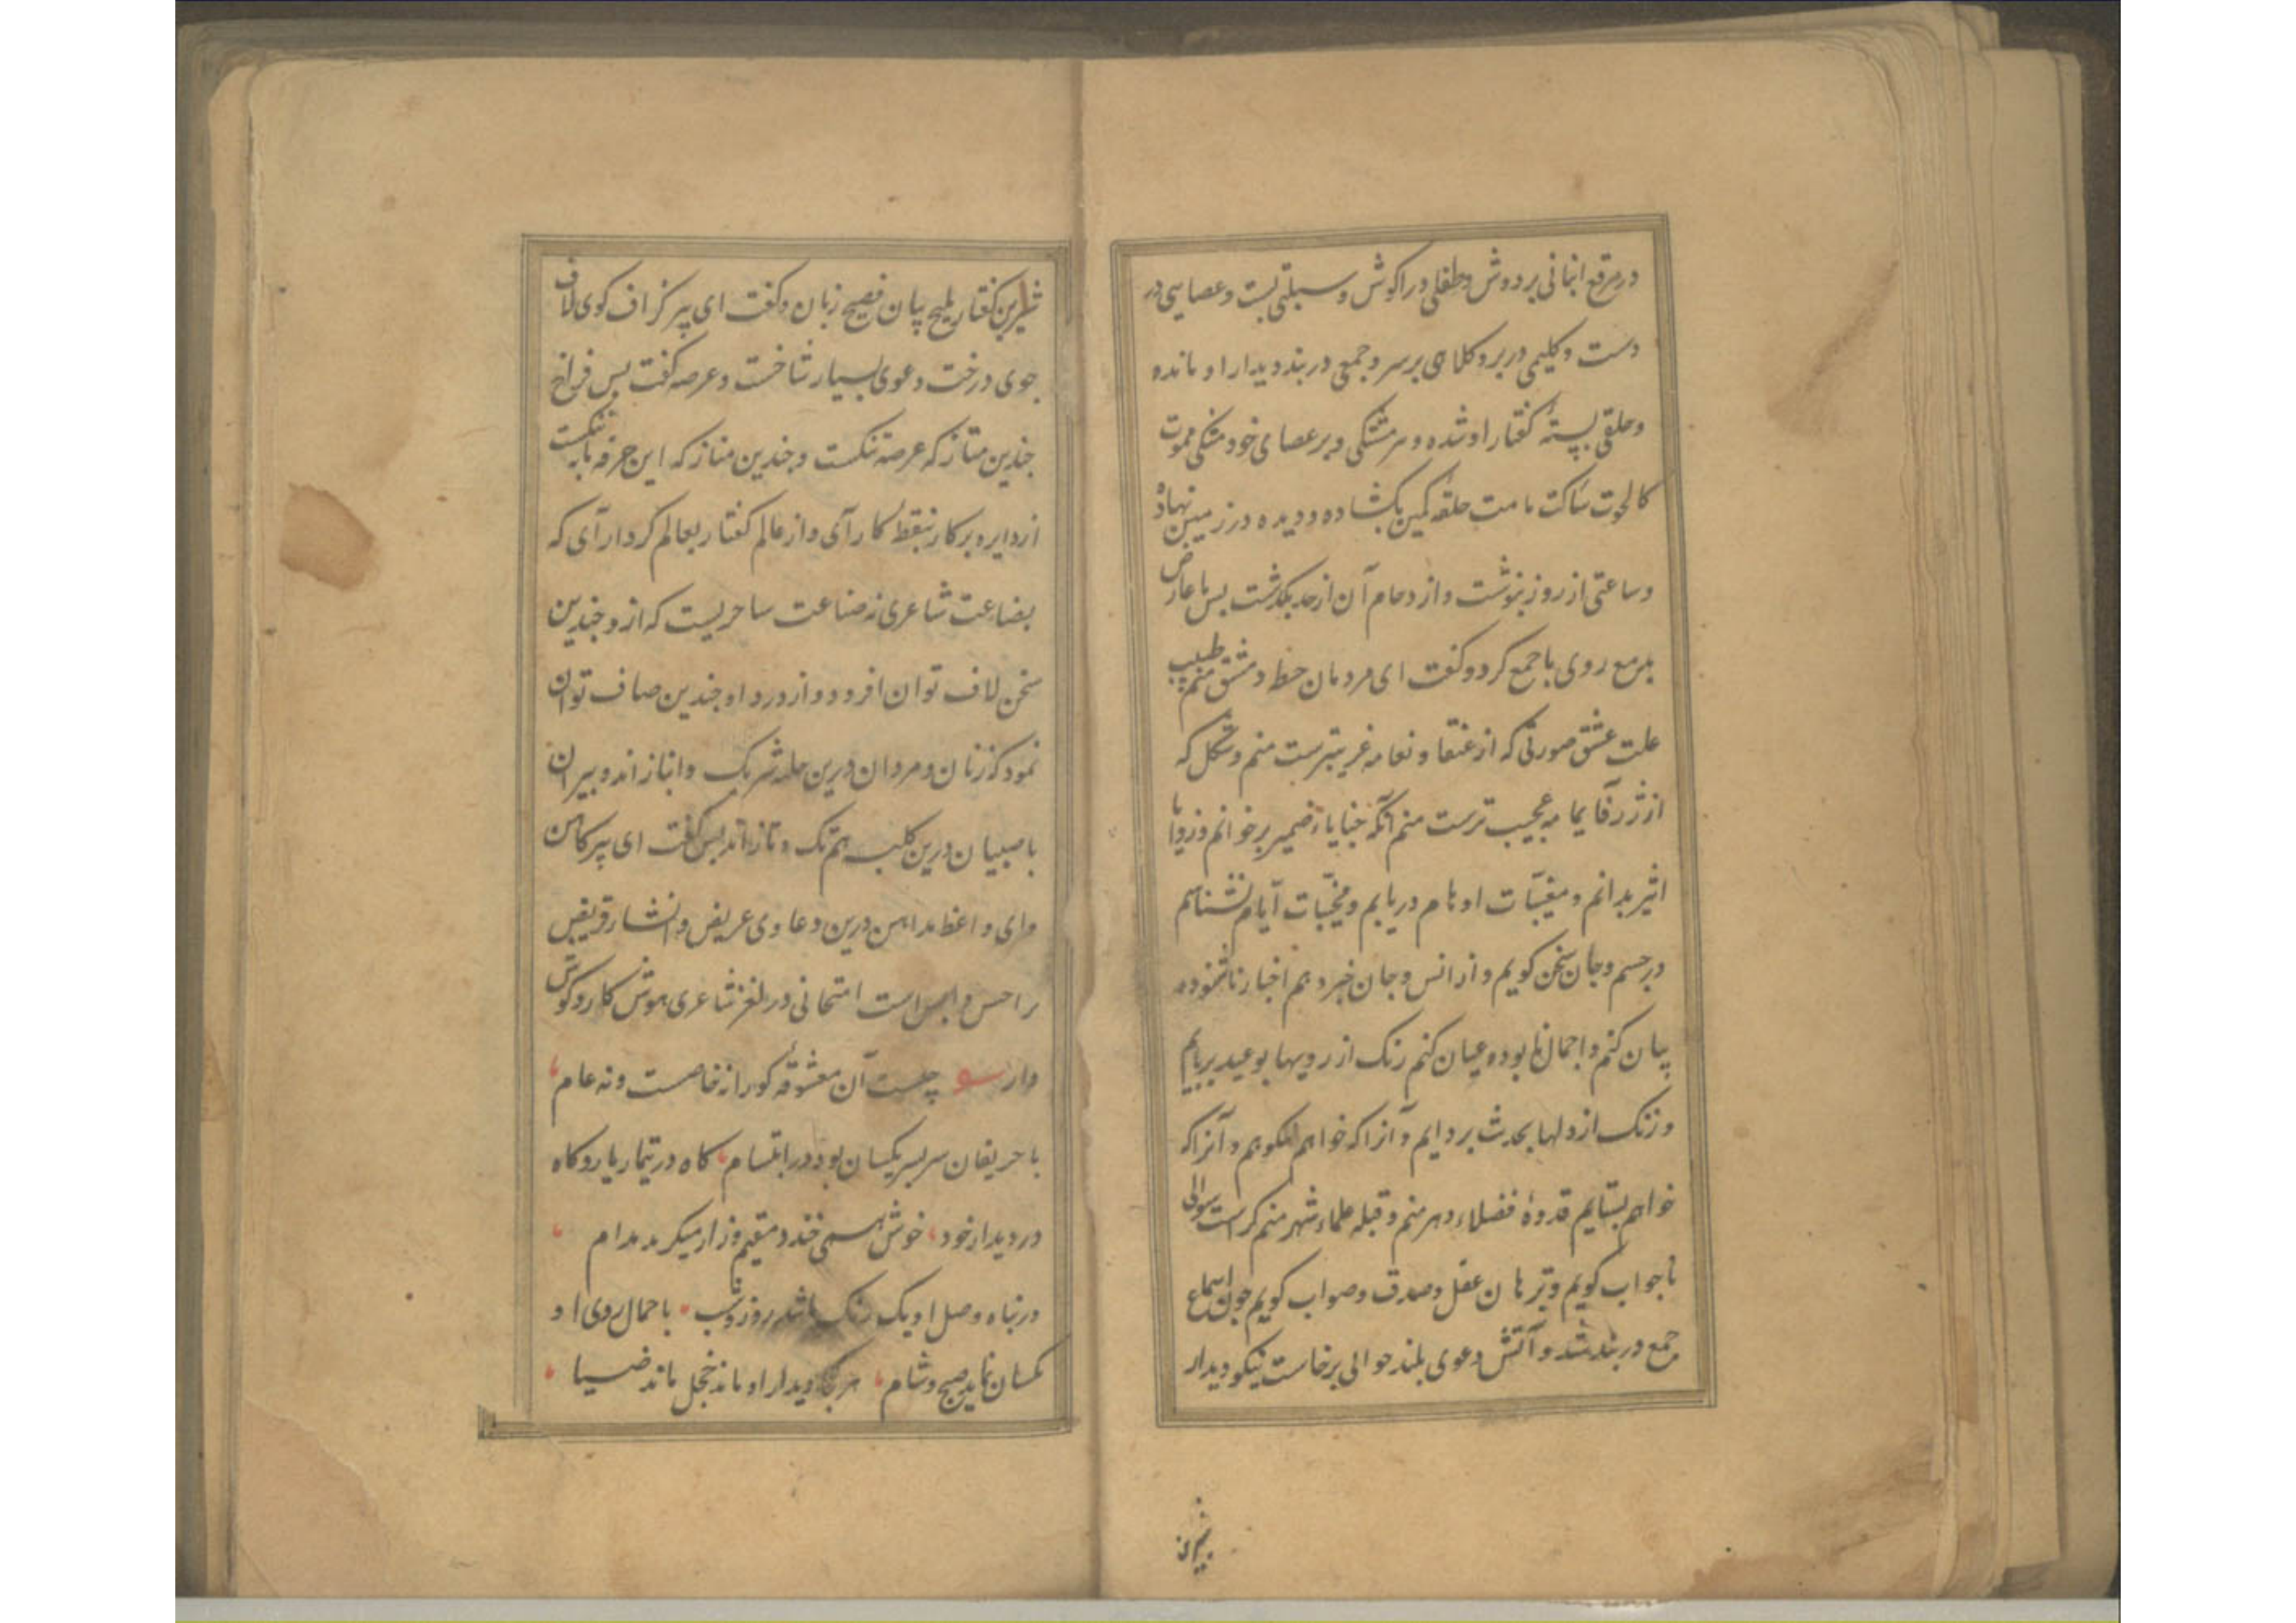 در مرقع انبانی بر دوش و طفلی در اکوش و سبلتی بست و عصایی در
دست و کلیمی در بر و کلاهی بر سر و جمعی در بند دیدار او مانده
و خلقی بستهٔ کفتار او شده و سر متنکی و بر عصای خود متکی فموت
کالحوت ساکت مامت حلقه کمین بکشاده و دیده در زمین نهاده
و ساعتی از روز بنوشت و ازدحام آن از حد بکذشت بس با عارض
بدمع روی با جمع کرد و کفت ای مردمان خطه دمشق منم طبیب
علت عشق صورتی که از عنقا و نعامه غریبترست منم و شکل که
از زرقا یمامه عجیب ترست منم آنکه خبایا ضمیر برخوانم و زوایا
اثیر بدانم و مغیبات اوهام دریابم و مخبیات ایام بشناسم
در جسم و جان سخن کویم و از انس و جان خبر دهم اخبار ناشنوده
بیان کنم و اجمال نابوده عیان کنم رنک از رویها بوعید بربایم
و زنک از دلها بحدث بردایم و آنرا که خواهم نکوهم و آنرا که
خواهم بستایم قدوهٔ فضلاء دهر منم و قبله علماء شهر منم کراست سوالی
تا جواب کویم و برهان عقل و صدق و صواب کویم چون اسماع
جمع در بند شد و آتش دعوی بلند حوالی برخاست نیکو دیدار
شیرین
شیرین کفتار ملیح بیان فصیح زبان و کفت ای پیر کزاف کوی لاف
جوی درخت دعوی بسیار شاخست و عرصه کفت بس فراخ
چندین متاز که عرصه تنکست و چندین مناز که این حرفه مابه ننکست
از دایره برکار بنقطهٔ کار آی و از عالم کفتار بعالم کردار آی که
بضاعت شاعری نه صناعت ساحریست که ازو چندین
سخن لاف توان افزود و از درد او چندین صاف توان
نمود که زنان و مردان درین حله شریک و انباز اند و بیران
با صبیان درین کلبه هم تک و تازاند بس کفت ای پیر کاهن
و ای واعظ مداهن درین دعاوی عریض و انشار قریض
را حس و است امتحانی در لغز شاعری هوش کار و کوش
دار چیست آن معشوقه کورا نه خاصست و نه عام
با حریفان سر بسر یکسان بود در ابتسام کاه در تیمار یار و کاه
در دیدار خود خوش همی خندد مقیم و زار میکرید مدام
در پناه وصل او یک رنک باشد روز و شب با جمال روی او
یکسان نماید صبح و شام هر کجا دیدار او ماند خجل ماند ضیا